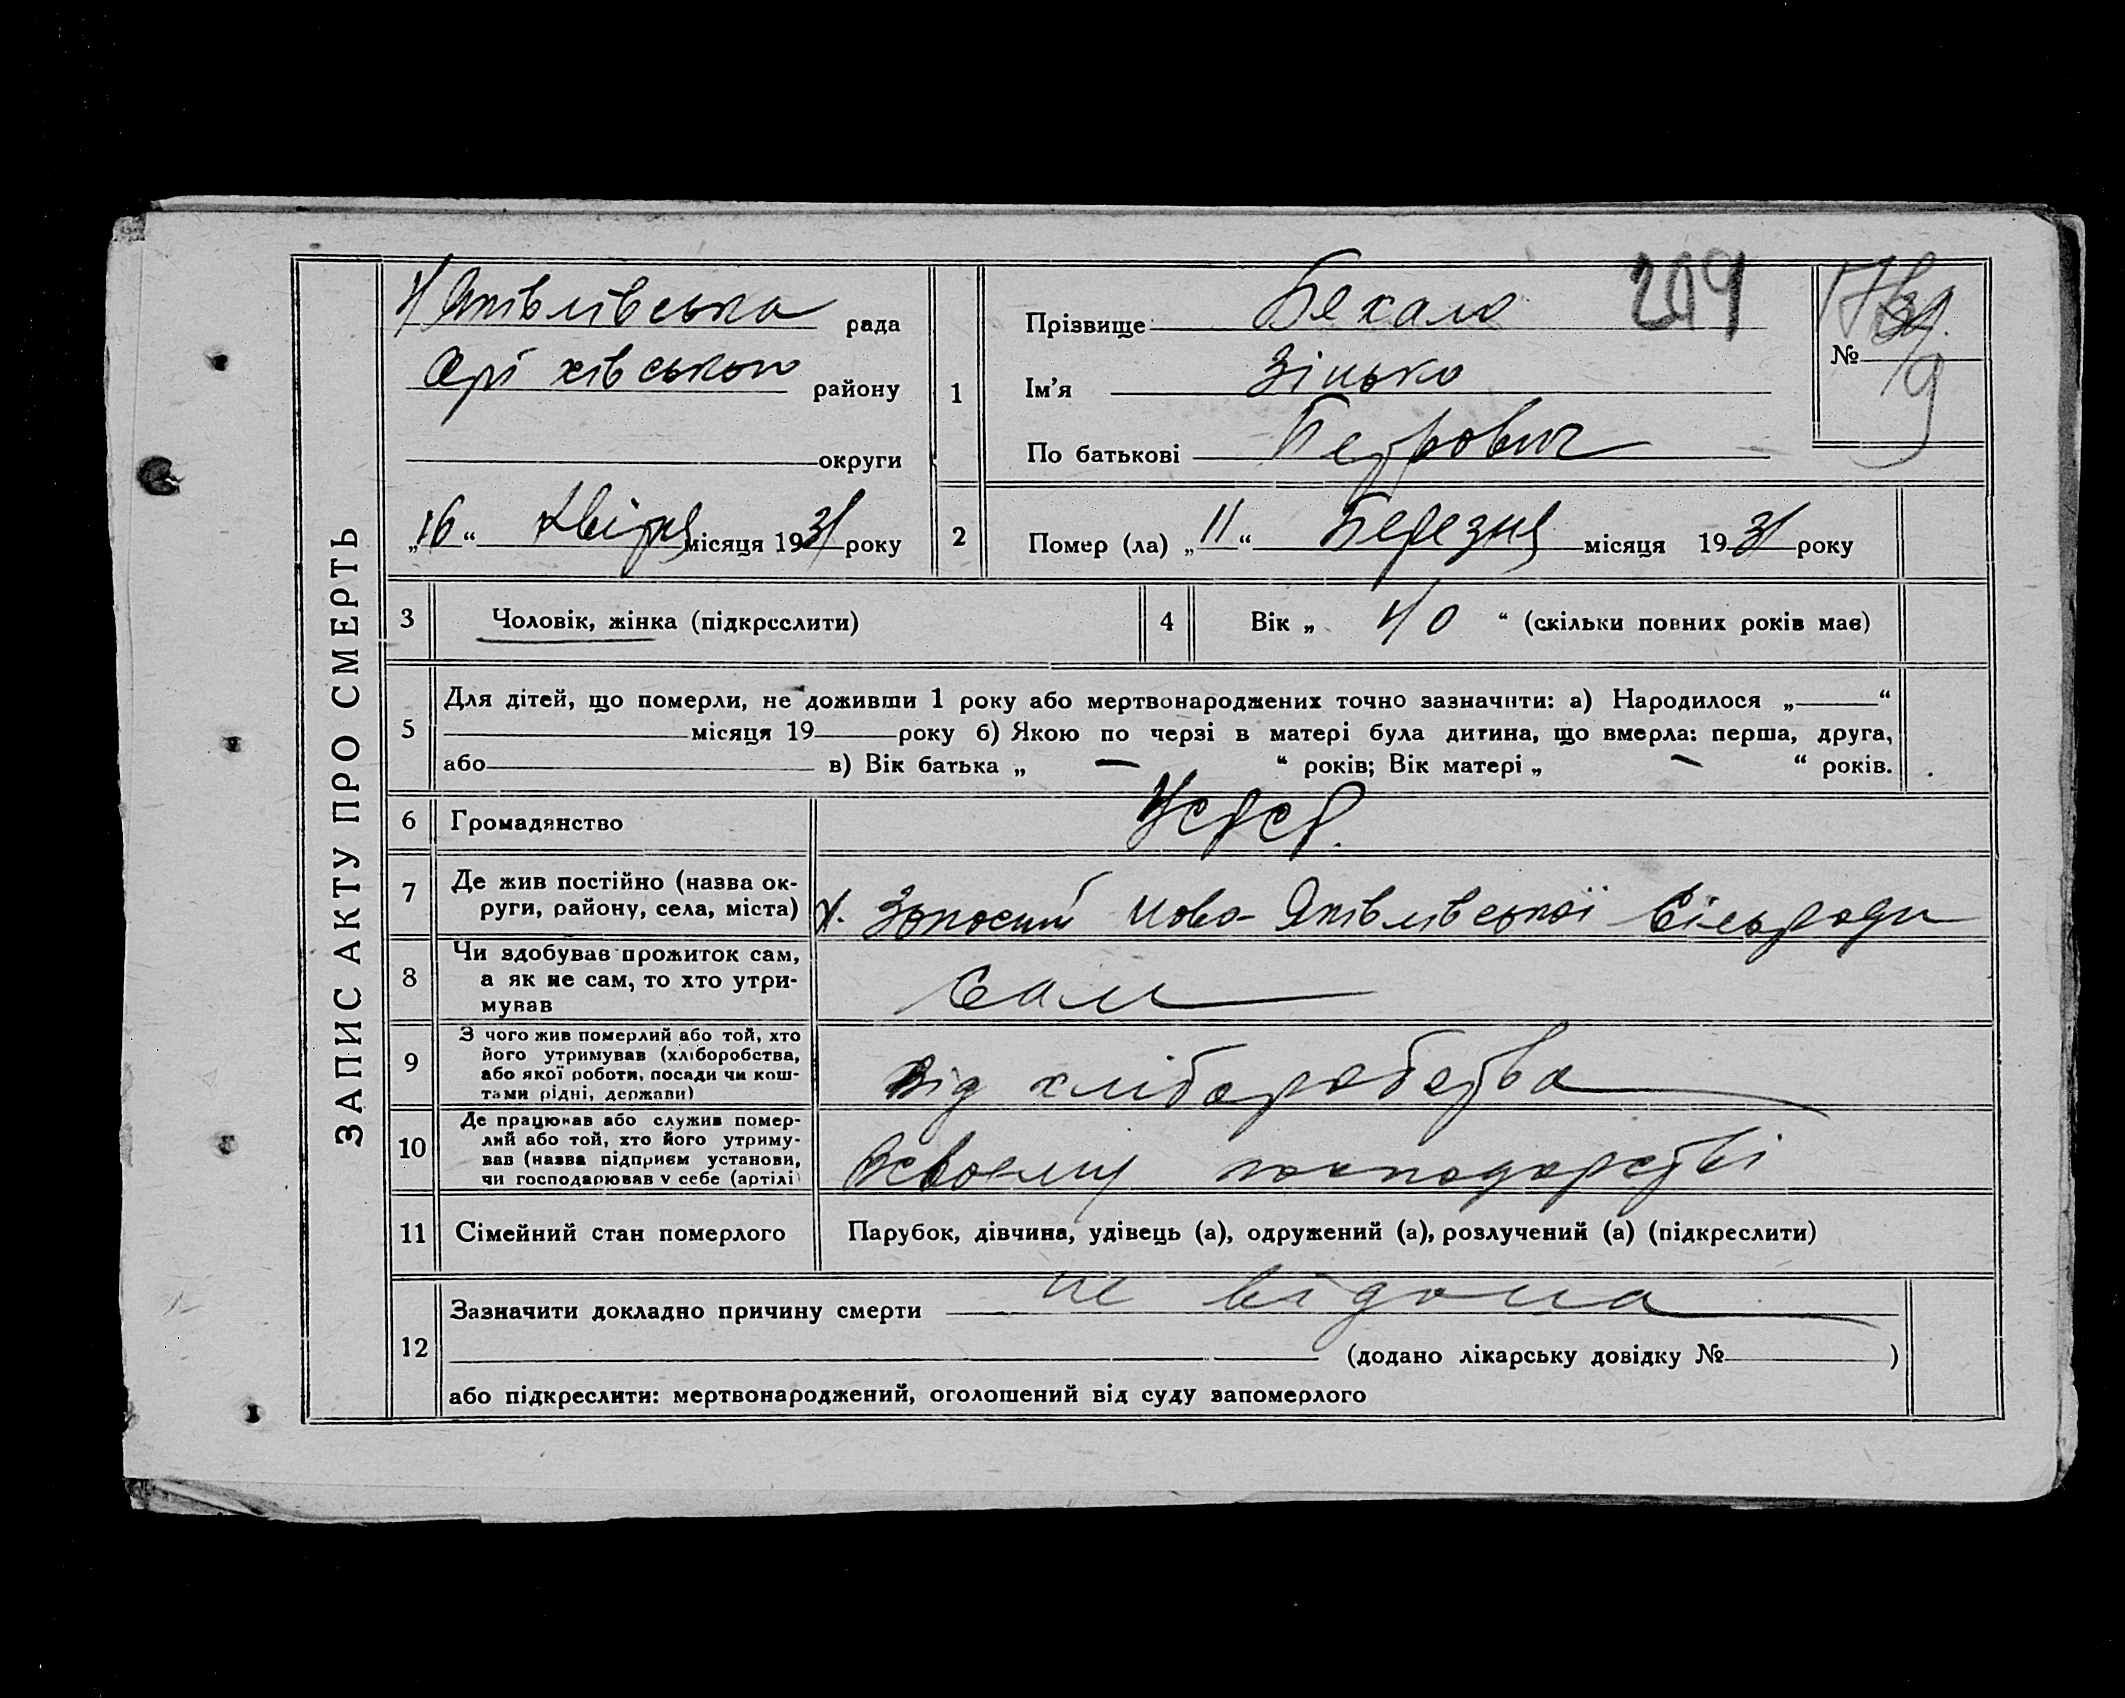 ЗАПИС АКТУ ПРО СМЕРТЬ
Н Яківлівська рада
Оріхівського району
округи
„16“ Квітня місяця 1931 року
1
Прізвище Бехало
204
Ім'я Зінько
№
По батькові Петрович
2 Помер (ла) „11“ Березня місяця 1931 року
3 Чоловік, жінка (підкреслити)
4 Вік „ 40 “ (скільки повних років має)
5 Для дітей, що померли, не доживши 1 року або мертвонароджених точно зазначити: а) Народилося „——“
місяця 19 року б) Якою по черзі в матері була дитина, що вмерла: перша, друга,
або в) Вік батька „ — “ років; Вік матері „ — “ років.
6 Громадянство УСРСР.
7 Де жив постійно (назва ок-
руги, району, села, міста) х. Зяпосний Ново-Яківлівської Сільради
8 Чи здобував прожиток сам,
а як не сам, то хто утри-
мував
Сам
9 З чого жив померлий або той, хто
його утримував (хліборобства,
або якої роботи, посади чи кош-
тами рідні, держави)
від хліборобства
10 Де працював або служив помер-
лий або той, хто його утриму-
вав (назва підприєм установи,
чи господарював у себе (артілі)
Всвоєму господарстві
11 Сімейний стан померлого Парубок, дівчина, удівець (а), одружений (а), розлучений (а) (підкреслити)
12 Зазначити докладно причину смерти не відома
(додано лікарську довідку № )
або підкреслити: мертвонароджений, оголошений від суду запомерлого